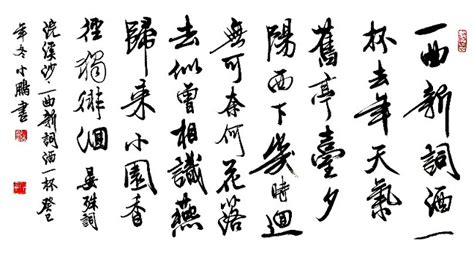 一曲新詞酒一
杯去年天氣
舊亭臺夕
陽西下幾時迴
無可奈何花落
去似曾相識燕
歸來小園香
徑獨徘徊 晏殊詞
浣溪沙·一曲新詞酒一杯 癸巳
年冬 小鵬書